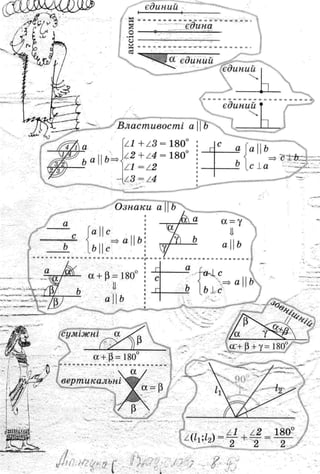 аксіоми
єдиний
єдина
α єдиний
єдиний
єдиний
Властивості a || b
a || b ⇒
∠1 + ∠3 = 180°
∠2 + ∠4 = 180°
∠1 = ∠2
∠3 = ∠4
c
a
b
a || b
c ⊥ a
⇒ c ⊥ b
Ознаки a || b
a
c
b
a || c
b || c
⇒ a || b
a
α
γ
b
α = γ
⇓
a || b
a
α
β
b
α + β = 180°
⇓
a || b
a
c
b
a ⊥ c
b ⊥ c
⇒ a || b
зовнішній
β
α
γ
α+β
α + β + γ = 180°
суміжні
α
β
α + β = 180°
вертикальні
α
α = β
β
90°
l₁
l₂
∠(l₁;l₂) = ∠1/2 + ∠2/2 = 180°/2